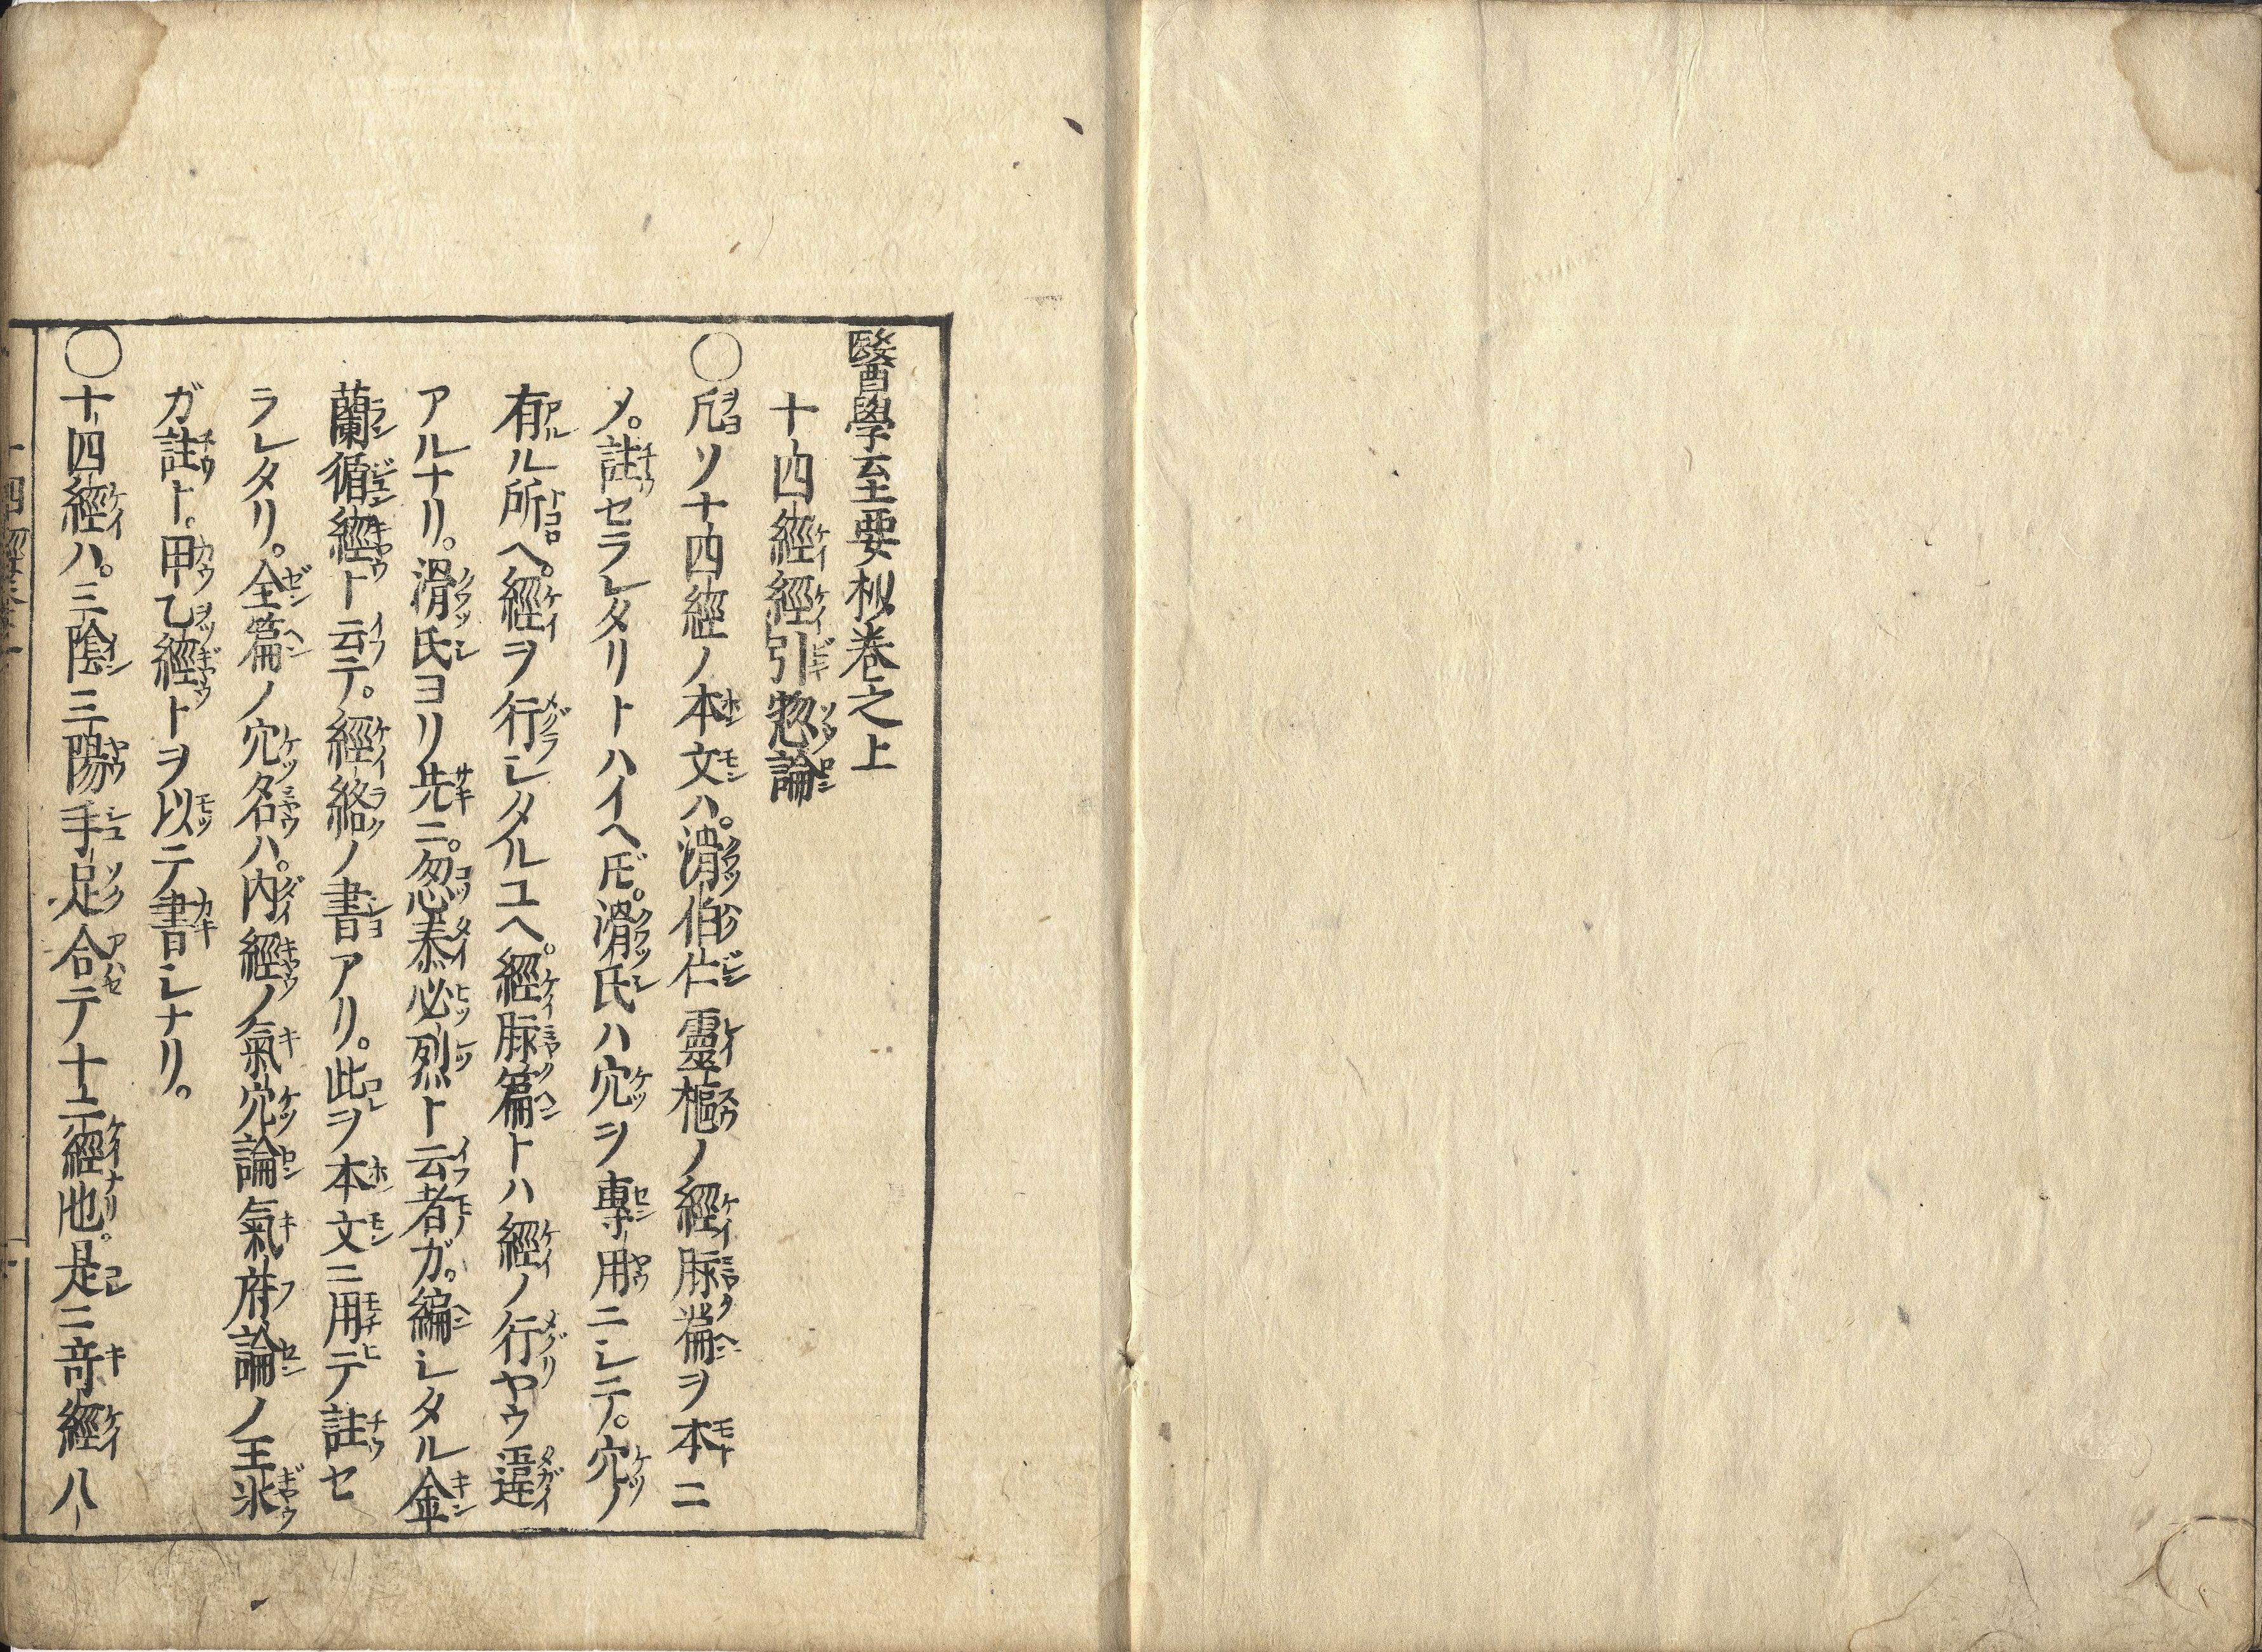 醫學至要抄卷之上
十四經經引惣論
〇凡ソ十四經ノ本文ハ。滑伯仁靈樞ノ經脉篇ヲ本ニ
〆。註セラレタリトハイヘ𪜈。滑氏ハ穴ヲ專用ニシテ。穴ノ
有ル所ヘ。經ヲ行シタルユヘ。經脉篇トハ經ノ行ヤウ違
アルナリ。滑氏ヨリ先ニ。忽泰必烈ト云者ガ。編シタル金
蘭循經ト云テ。經絡ノ書アリ。此ヲ本文ニ用テ註セ
ラレタリ。全篇ノ穴名ハ。内經ノ氣穴論氣府論ノ王氷
ガ註ト。甲乙經トヲ以テ書シナリ。
〇十四經ハ。三陰三陽手足合テ十二經也。是ニ奇經八